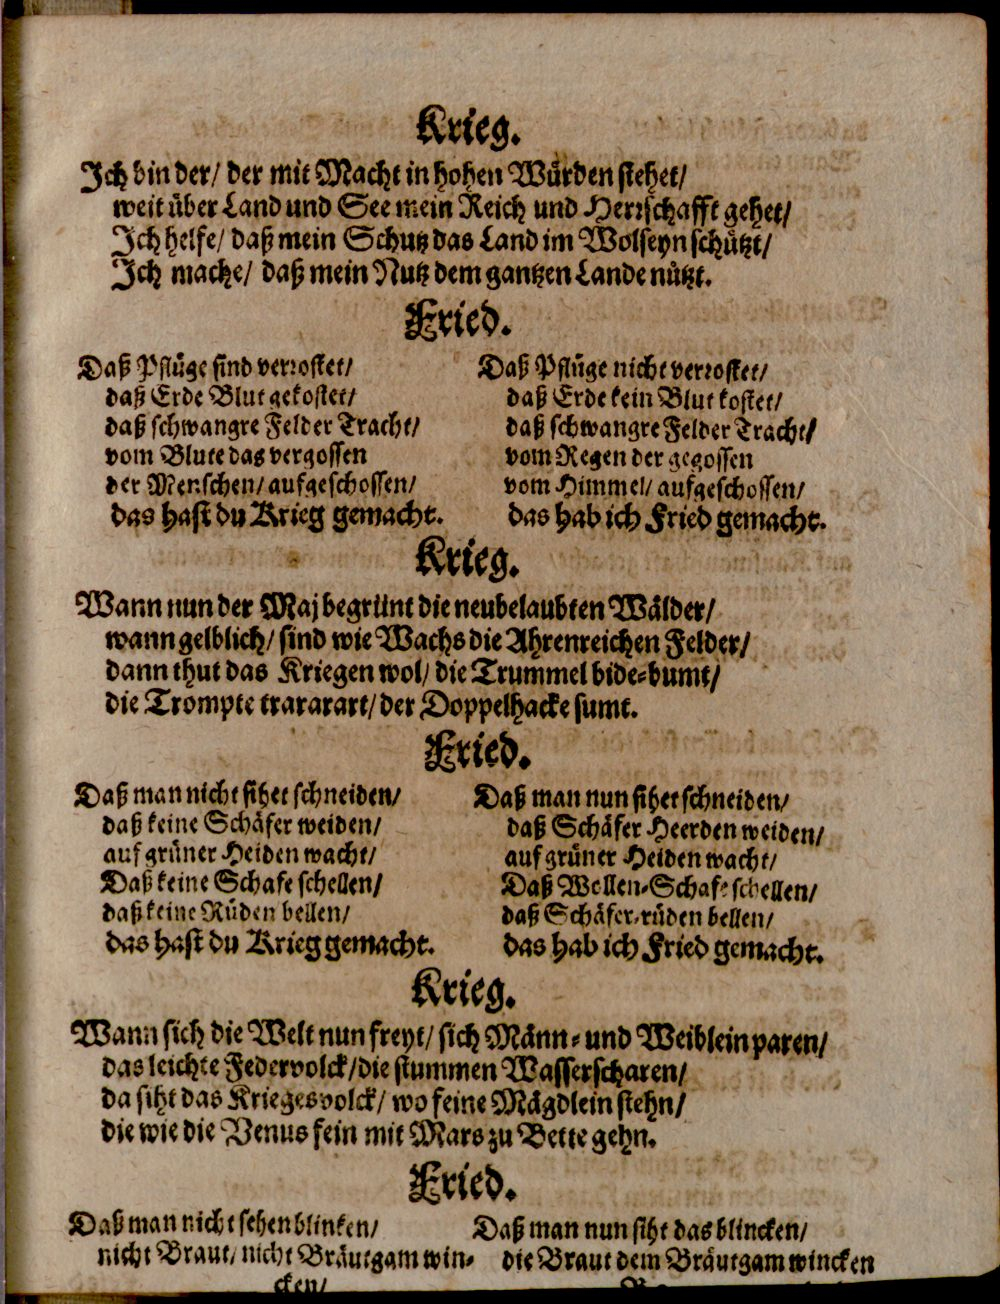 Krieg.
Ich bin der/ der mit Macht in hohen Würden stehet/
weit über Land und See mein Reich und Herrschafft gehet/
Ich helfe/ daß mein Schutz das Land im Wolseyn schützt/
Ich mache/ daß mein Nutz dem gantzen Lande nützt.
Fried.
Daß Pflüge sind verrostet/
daß Erde Blut gekostet/
daß schwangre Felder Tracht/
vom Blute das vergossen
der Menschen/ aufgeschossen/
das hast du Krieg gemacht.
Daß Pflüge nicht verrostet/
daß Erde kein Blut kostet/
daß schwangre Felder Tracht/
vom Regen der gegossen
vom Himmel/ aufgeschossen/
das hab ich Fried gemacht.
Krieg.
Wann nun der Maj begrünt die neubelaubten Wälder/
wann gelblich/ sind wie Wachs die Ahrenreichen Felder/
dann thut das Kriegen wol/ die Trummel bide-bumt/
die Trompte trararart/ der Doppelhacke sumt.
Fried.
Daß man nicht sihet schneiden/
daß keine Schäfer weiden/
auf grüner Heiden wacht/
Daß keine Schafe schellen/
daß keine Rüden bellen/
das hast du Krieg gemacht.
Daß man nun sihet schneiden/
daß Schäfer Heerden weiden/
auf grüner Heiden wacht/
Daß Wollen-Schafe schellen/
daß Schäfer-rüden bellen/
das hab ich Fried gemacht.
Krieg.
Wann sich die Welt nun freyt/ sich Männ- und Weiblein paren/
das leichte Federvolck/ die stummen Wasserscharen/
da siht das Kriegesvolck/ wo feine Mägdlein stehn/
die wie die Venus fein mit Mars zu Bette gehn.
Fried.
Daß man nicht sehen blinken/
nicht Braut/ nicht Bräutgam win-
cken/
Daß man nun siht das blincken/
die Braut dem Bräutgam wincken